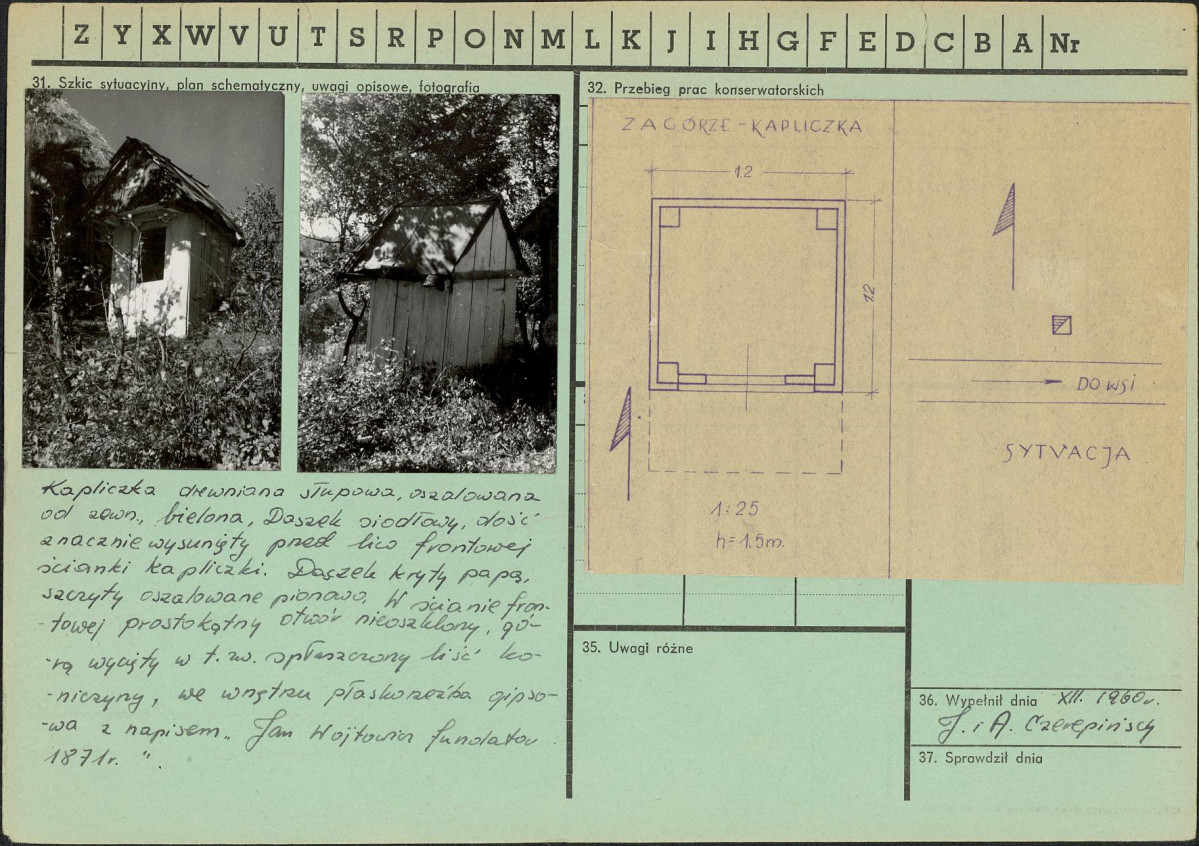 Z Y X W V U T S R P O N M L K J I H G F E D C B A Nr
31. Szkic sytuacyjny, plan schematyczny, uwagi opisowe, fotografia
Kapliczka drewniana słupowa, oszalowana
od zewn., bielona, Daszek siodłowy, dość
znacznie wysunięty przed lico frontowej
ścianki kapliczki. Daszek kryty papą,
szczyty oszalowane pionowo. W ścianie fron-
-towej prostokątny otwór nieoszklony, gó-
-rą wycięty w t.zw. spłaszczony liść ko-
-niczyny, we wnętrzu płaskorzeźba gipso-
-wa z napisem „Jan Wojtowicz fundator
1871r.".
32. Przebieg prac konserwatorskich
ZAGÓRZE - KAPLICZKA
1.2
1.2
1:25
h=1.5m.
DO WSI
SYTUACJA
35. Uwagi różne
36. Wypełnił dnia XII. 1960r.
J. i A. Czerepińscy
37. Sprawdził dnia